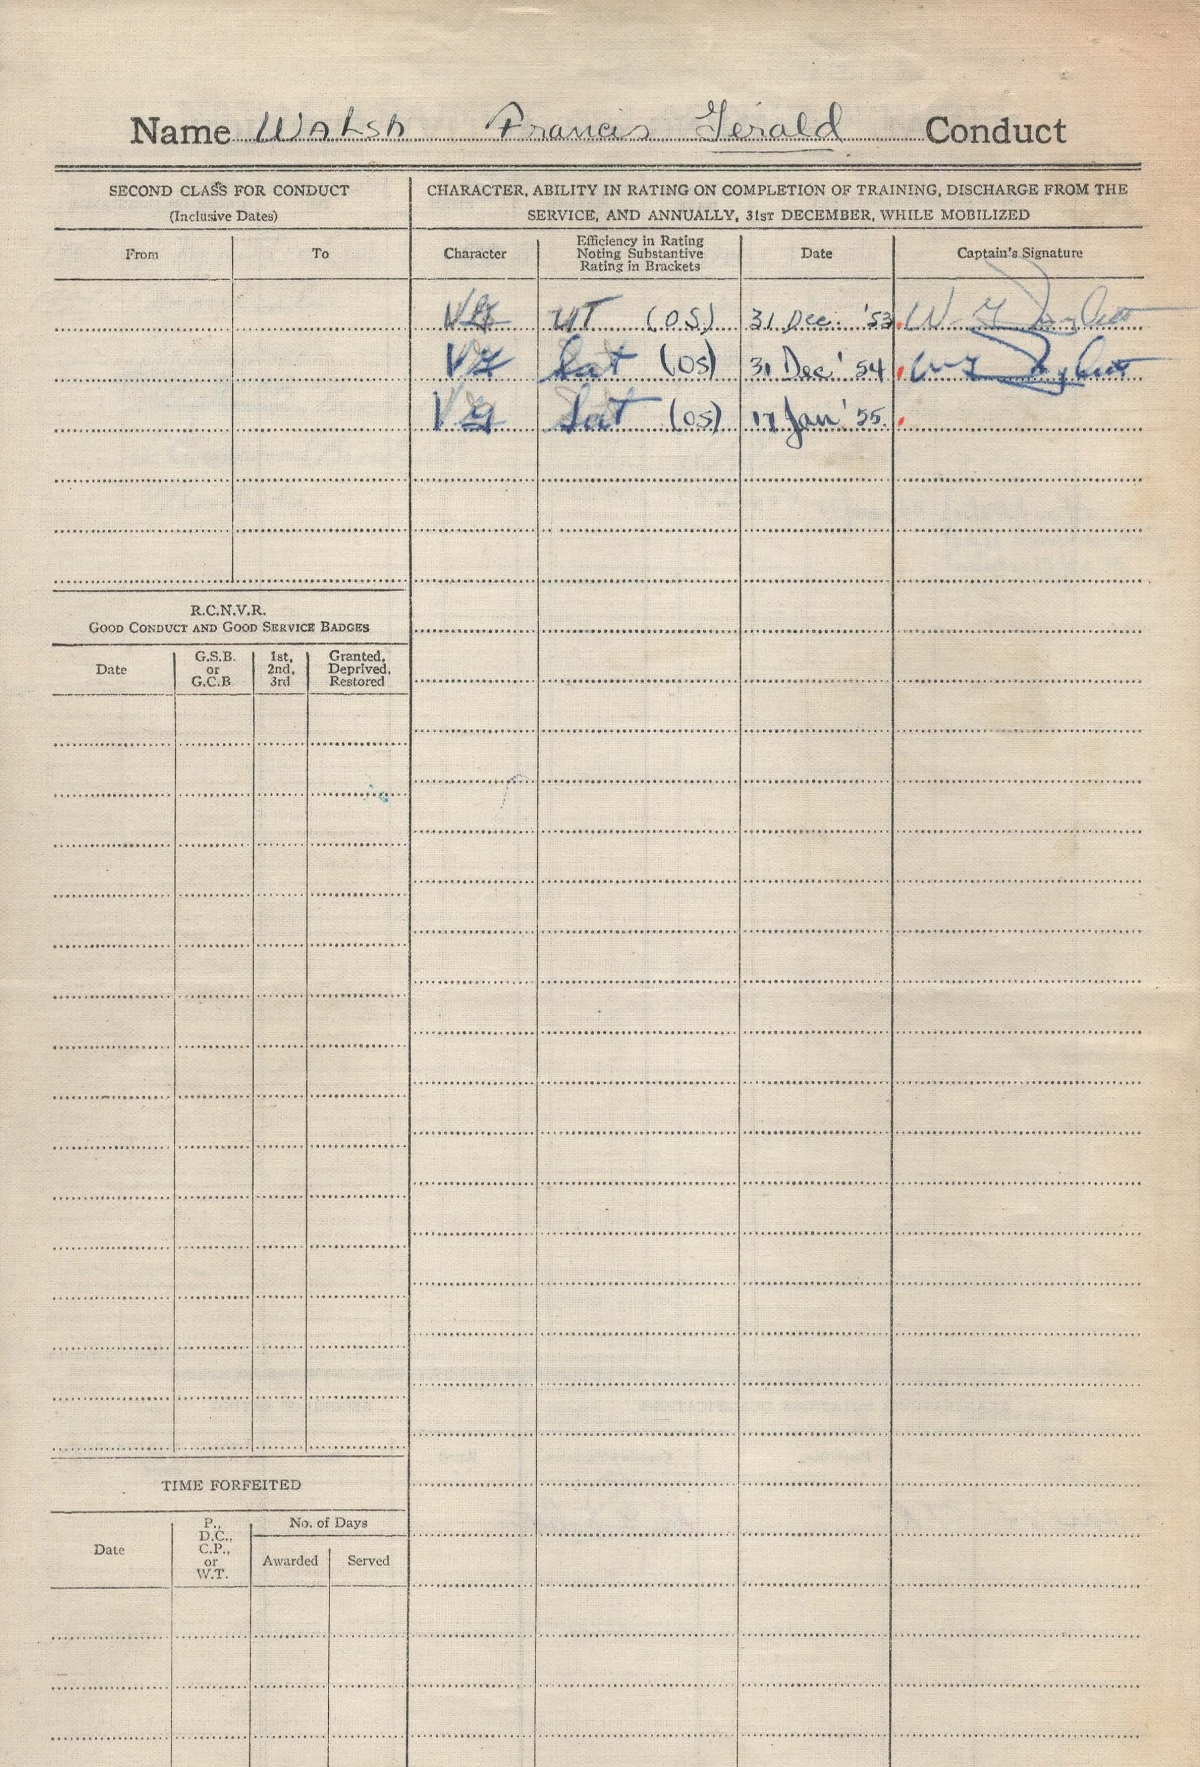 Name Walsh Francis Gerald Conduct
SECOND CLASS FOR CONDUCT
(Inclusive Dates)
From To
CHARACTER, ABILITY IN RATING ON COMPLETION OF TRAINING, DISCHARGE FROM THE
SERVICE, AND ANNUALLY, 31ST DECEMBER, WHILE MOBILIZED
Character
Efficiency in Rating
Noting Substantive
Rating in Brackets
Date
Captain's Signature
VG UT (OS) 31 Dec. '53 W. G.
VG Sat (OS) 31 Dec '54
VG Sat (OS) 17 Jan '55
R.C.N.V.R.
GOOD CONDUCT AND GOOD SERVICE BADGES
Date
G.S.B.
or
G.C.B.
1st,
2nd,
3rd
Granted,
Deprived,
Restored
TIME FORFEITED
Date
P.,
D.C.,
C.P.,
or
W.T.
No. of Days
Awarded Served